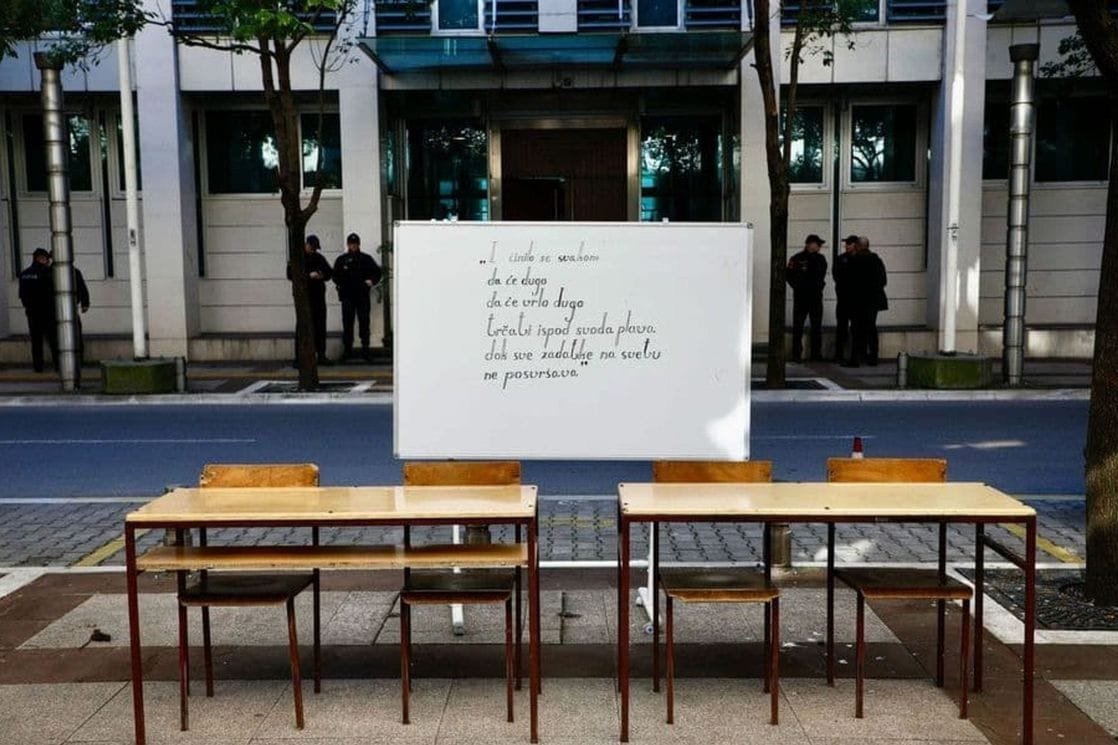 „I činilo se svakom
da će dugo
da će vrlo dugo
trčati ispod svoda plava
dok sve zadatke na svetu
ne posvršava"